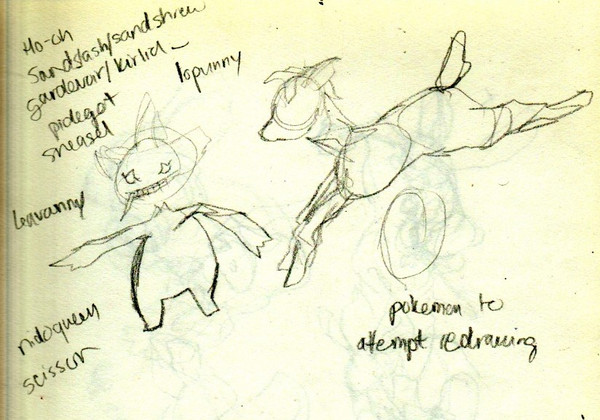 Ho-oh
Sandslash/sandshrew
gardevoir/kirlia
lopunny
pidegot
sneasel
leavanny
nidoqueen
scissor
pokemon to
attempt redrawing